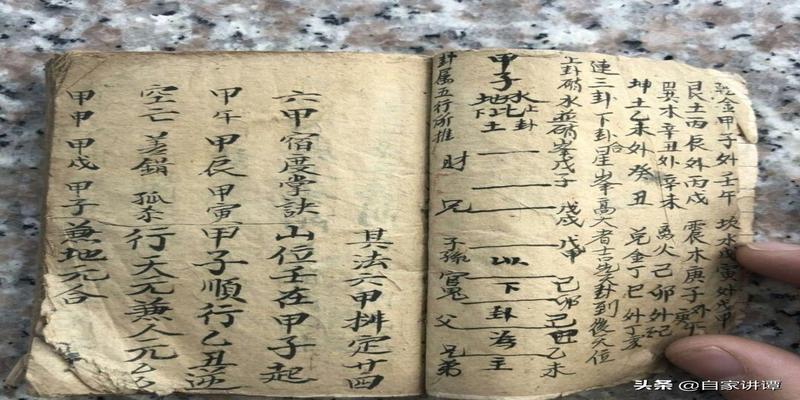 乾金甲子外壬午 坎水戊寅外戊申
艮土丙辰外丙戌 震木庚子外庚午
巽木辛丑外辛未 离火己卯外己酉
坤土乙未外癸丑 兑金丁巳外丁亥
連三卦下卦合星峯高大者吉先卦到後天位
上卦硝水並硝峯戊子 戊戌 戊申 己卯 己丑 乙未
甲子 水地比 上卦 下土 以下卦為主
卦属五行所推 財 兄 子孫 官鬼 父 兄弟
其法六甲排定廿四
六甲宿度掌訣山位壬在甲子起
甲午甲辰甲寅甲子順行乙丑逆
空亡差錯孤 行天元兼人元乙
甲申甲戌甲子兼地元合
头条 @自家讲谭